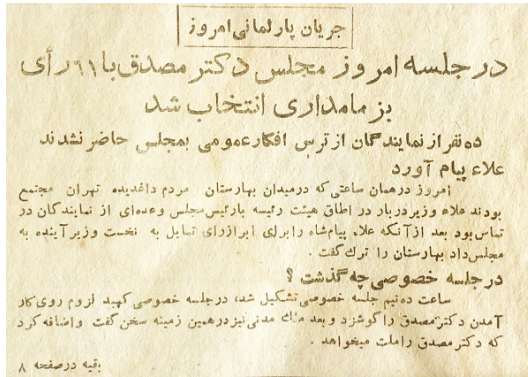 جریان پارلمانی امروز
در جلسه امروز مجلس دکتر مصدق با ۶۱ رأی
بزمامداری انتخاب شد
ده نفر از نمایندگان از ترس افکار عمومی بمجلس حاضر نشدند
علاء پیام آورد
امروز در همان ساعتی که در میدان بهارستان مردم داغدیده تهران مجتمع
بودند علاء وزیر دربار در اطاق هیئت رئیسه با رئیس مجلس و عده‌ای از نمایندگان در
تماس بود بعد از آنکه علاء پیام شاه را برای ابراز رای تمایل به نخست وزیر آینده به
مجلس داد بهارستان را ترك گفت .
در جلسه خصوصی چه گذشت ؟
ساعت ده نیم جلسه خصوصی تشکیل شد، در جلسه خصوصی کهبد لزوم روی کار
آمدن دکتر مصدق را گوشزد و بعد مدنی نیز در همین زمینه سخن گفت و اضافه کرد
که دکتر مصدق را ملت میخواهد .
بقیه در صفحه ۸